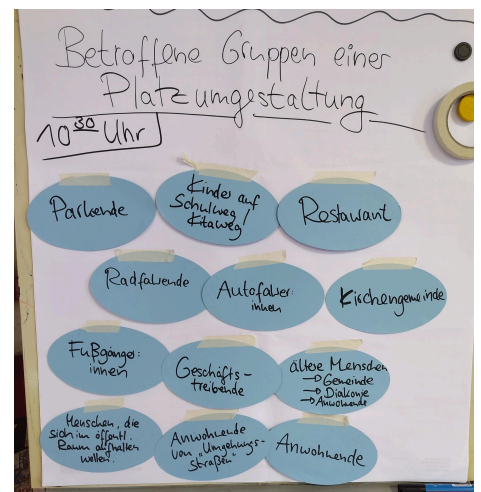 Betroffene Gruppen einer
Platzumgestaltung
10³⁰ Uhr
Parkende
Kinder auf
Schulweg /
Kitaweg
Restaurant
Radfahrende
Autofahrer:
innen
Kirchengemeinde
Fußgänger:
innen
Geschäfts-
treibende
ältere Menschen
→ Gemeinde
→ Diakonie
→ Anwohnende
Menschen, die
sich im öffentl.
Raum aufhalten
wollen.
Anwohnende
von "Umgehungs-
straßen"
Anwohnende